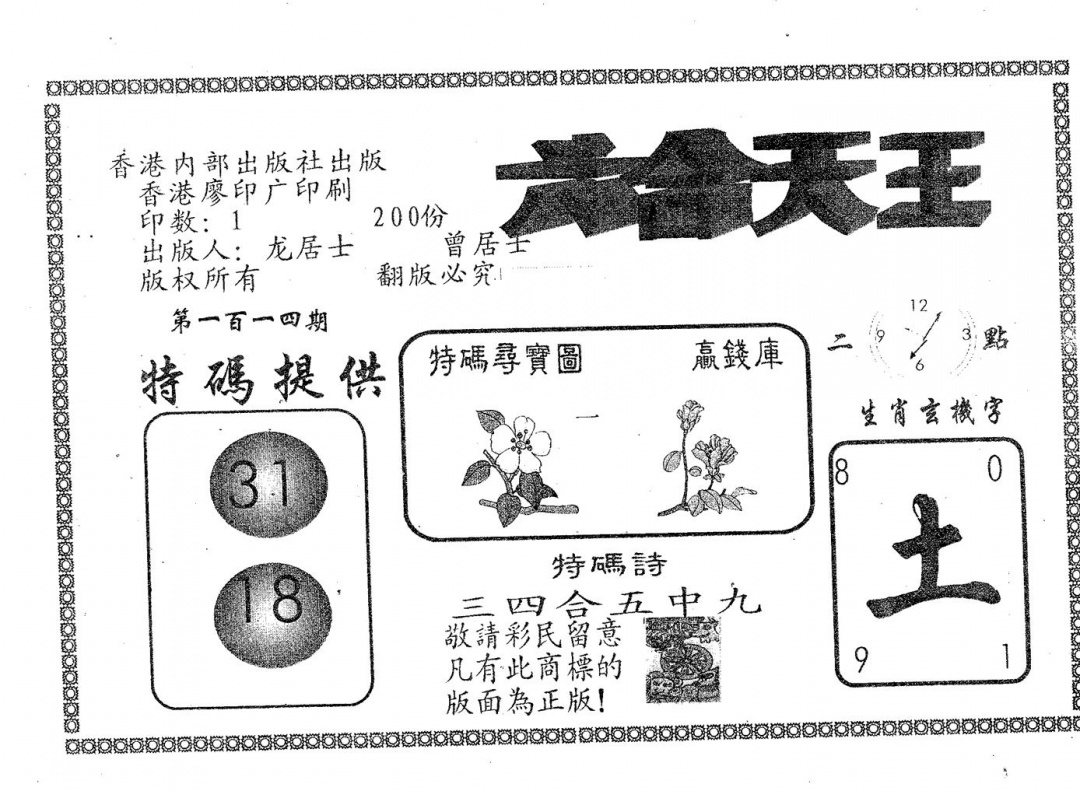 六合天王
香港内部出版社出版
香港廖印广印刷
印数：1 200份
出版人：龙居士 曾居士
版权所有 翻版必究
第一百一四期
特碼提供
31
18
特碼尋寶圖 贏錢庫
一
特碼詩
三四合五中九
敬請彩民留意
凡有此商標的
版面為正版！
二 點
12
9 3
6
生肖玄機字
8 0
土
9 1